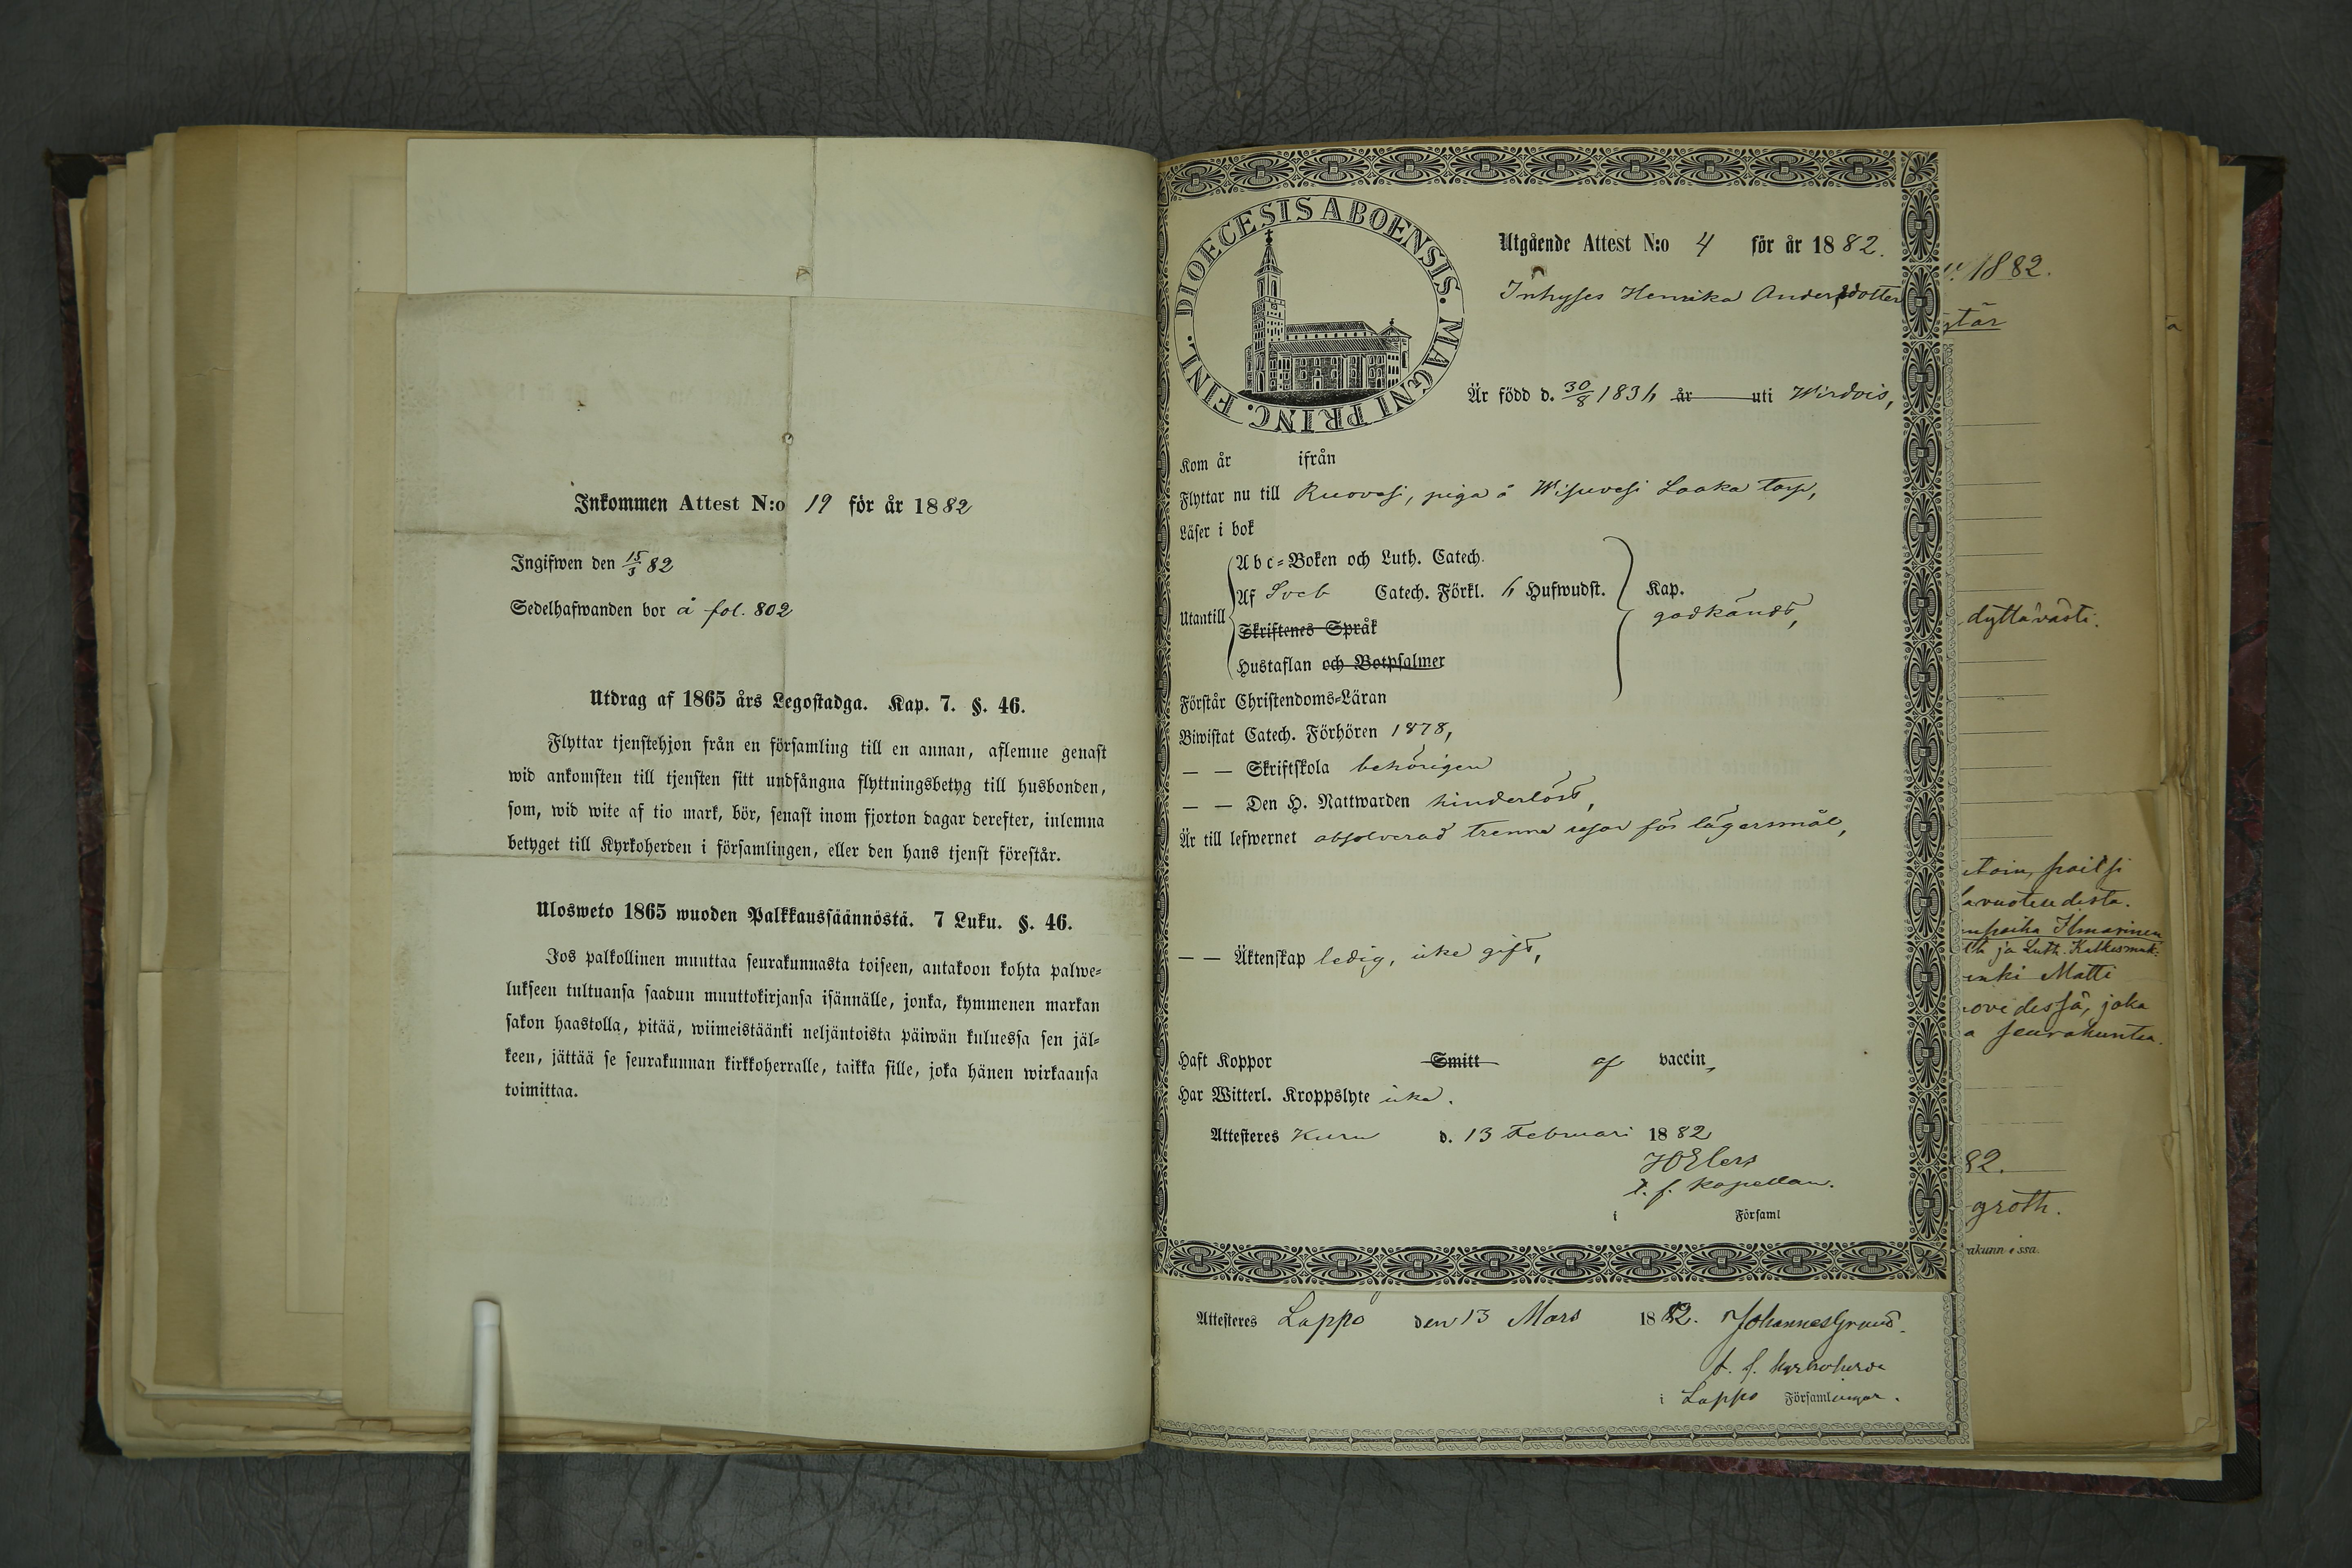 Inkommen Attest N:o 19 för år 1882
Ingifwen den 15/3 82
Sedelhafwanden bor å fol. 802
Utdrag af 1865 års Legostadga. Kap. 7. §. 46.
Flyttar tjenstehjon från en församling till en annan, aflemne genast
wid ankomsten till tjensten sitt undfångna flyttningsbetyg till husbonden,
som, wid wite af tio mark, bör, senast inom fjorton dagar derefter, inlemna
betyget till Kyrkoherden i församlingen, eller den hans tjenst förestår.
Ulosweto 1865 wuoden Palkkaussäännöstä. 7 Luku. §. 46.
Jos palkollinen muuttaa seurakunnasta toiseen, antakoon kohta palwe-
lukseen tultuansa saadun muuttokirjansa isännälle, jonka, kymmenen markan
sakon haastolla, pitää, wiimeistäänki neljäntoista päiwän kuluessa sen jäl-
keen, jättää se seurakunnan kirkkoherralle, taikka sille, joka hänen wirkaansa
toimittaa.
DIOECESIS ABOENSIS. MAGNI PRINC. FINL.
Utgående Attest N:o 4 för år 1882.
Inhyses Henrika Andersdotter
Är född d. 30/8 1836 år uti Wirdois,
Kom år ifrån
Flyttar nu till Ruovesi, piga å Wisuvesi Laaka torp,
Läser i bok
Utantill
Abc-Boken och Luth. Catech.
Af Sveb Catech. Förkl. 6 Hufwudst.
Skriftenes Språk
Hustaflan och Botpsalmer
Kap.
godkändt,
Förstår Christendoms-Läran
Biwistat Catech. Förhören 1878,
— — Skriftskola behörigen
— — Den H. Nattwarden hinderlöst,
Är till lefwernet absolverad trenne resor för lägersmål,
— — Äktenskap ledig, icke gift,
Haft Koppor Smitt af vaccin,
Har Witterl. Kroppslyte icke.
Attesteres Kuru d. 13 Februari 1882
HOElers
t. f. Kapellan.
i Församl
Attesteres Lappo den 13 Mars 1882. Johannes Grund.
t. f. kyrkoherde
i Lappo Församlingar.
1882.
dyttävästi.
avuotendesta.
Ilmarinen
ja Luth. Katkesmuk:
enki Matti
joka
a seurakuntaa.
82.
groth.
akunnissa.